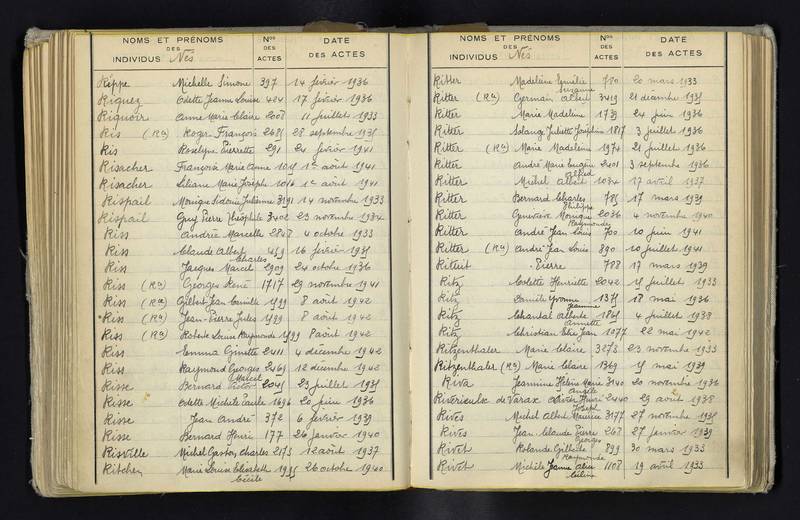 NOMS ET PRÉNOMS
DES
INDIVIDUS Nés
Nos
DES
ACTES
DATE
DES ACTES
Rippe Michelle Simone 397 14 février 1936
Riquez Odette Jeanne Louise 424 17 février 1936
Riquoir Anne Marie Claire 2008 11 juillet 1933
Ris (Ra) Roger François 28 septembre 1935
Ris Roselyne Pierrette 291 24 février 1941
Risacher François Marie Anne 1er août 1941
Risacher Liliane Marie Josèphe 1016 1er août 1941
Rispail Monique Sidonie Julienne 3191 14 novembre 1933
Rispail Guy Pierre Théophile 3402 23 novembre 1934
Riss Andrée Marcelle 4 octobre 1933
Riss Claude Albert 459 16 février 1935
Charles
Riss Jacques Marcel 2909 24 octobre 1936
Riss (Ra) Georges René 1717 29 novembre 1941
Riss (Ra) Gilbert Jean Camille 8 août 1942
Riss (Ra) Jean-Pierre Jules 8 août 1942
Riss (Ra) Roberte Louise Raymonde 8 août 1942
Riss Emma Ginette 2411 4 décembre 1942
Riss Raymond Georges 2469 12 décembre 1942
Marcel
Risse Bernard 23 juillet 1935
Risse Odette Michèle Paule 1696 20 juin 1936
Risse Jean André 372 6 février 1939
Risse Bernard Henri 177 26 janvier 1940
Risville Michel Gaston Charles 2173 12 août 1937
Ritchen Marie Louise Elisabeth 26 octobre 1940
Cécile
NOMS ET PRÉNOMS
DES
INDIVIDUS Nés
Nos
DES
ACTES
DATE
DES ACTES
Ritter Madeleine Emilie 780 20 mars 1933
Suzanne
Ritter (Ra) Germain Albert 3419 21 décembre 1935
Ritter Marie Madeleine 1739 24 juin 1936
Ritter Solange Juliette Joséphine 1817 3 juillet 1936
Ritter (Ra) Marie Madeleine 1974 21 juillet 1936
Ritter André Marie Eugène 2401 3 septembre 1936
Alfred
Ritter Michel Albert 1034 17 avril 1937
Ritter Bernard Charles 785 17 mars 1939
Philippe
Ritter Geneviève Monique 2036 4 novembre 1940
Raymonde
Ritter André Jean Louis 700 10 juin 1941
Ritter (Ra) André Jean Louis 890 10 juillet 1941
Rituit Pierre 788 17 mars 1939
Ritz Colette Henriette 2042 15 juillet 1933
Ritz Camille Yvonne 1375 18 mai 1936
Jeanne
Ritz Chantal Alberte 1865 4 juillet 1938
Annette
Ritz Christian Jean 1077 22 mai 1942
Ritzenthaler Marie Claire 3273 23 novembre 1933
Ritzenthaler (Ra) Marie Claire 1369 15 mai 1939
Riva Jeannine Hélène Marie 3140 20 novembre 1936
Angèle
Rivérieulx de Varax Henri 2440 29 août 1938
Joseph
Rives Michel Albert Maurice 3177 27 novembre 1935
Rives Jean Claude Pierre 268 27 janvier 1939
Georges
Rivet Rolande Gilberte 899 30 mars 1933
Raymonde
Rivet Michèle Jeanne Alice 1108 19 avril 1933
Céline